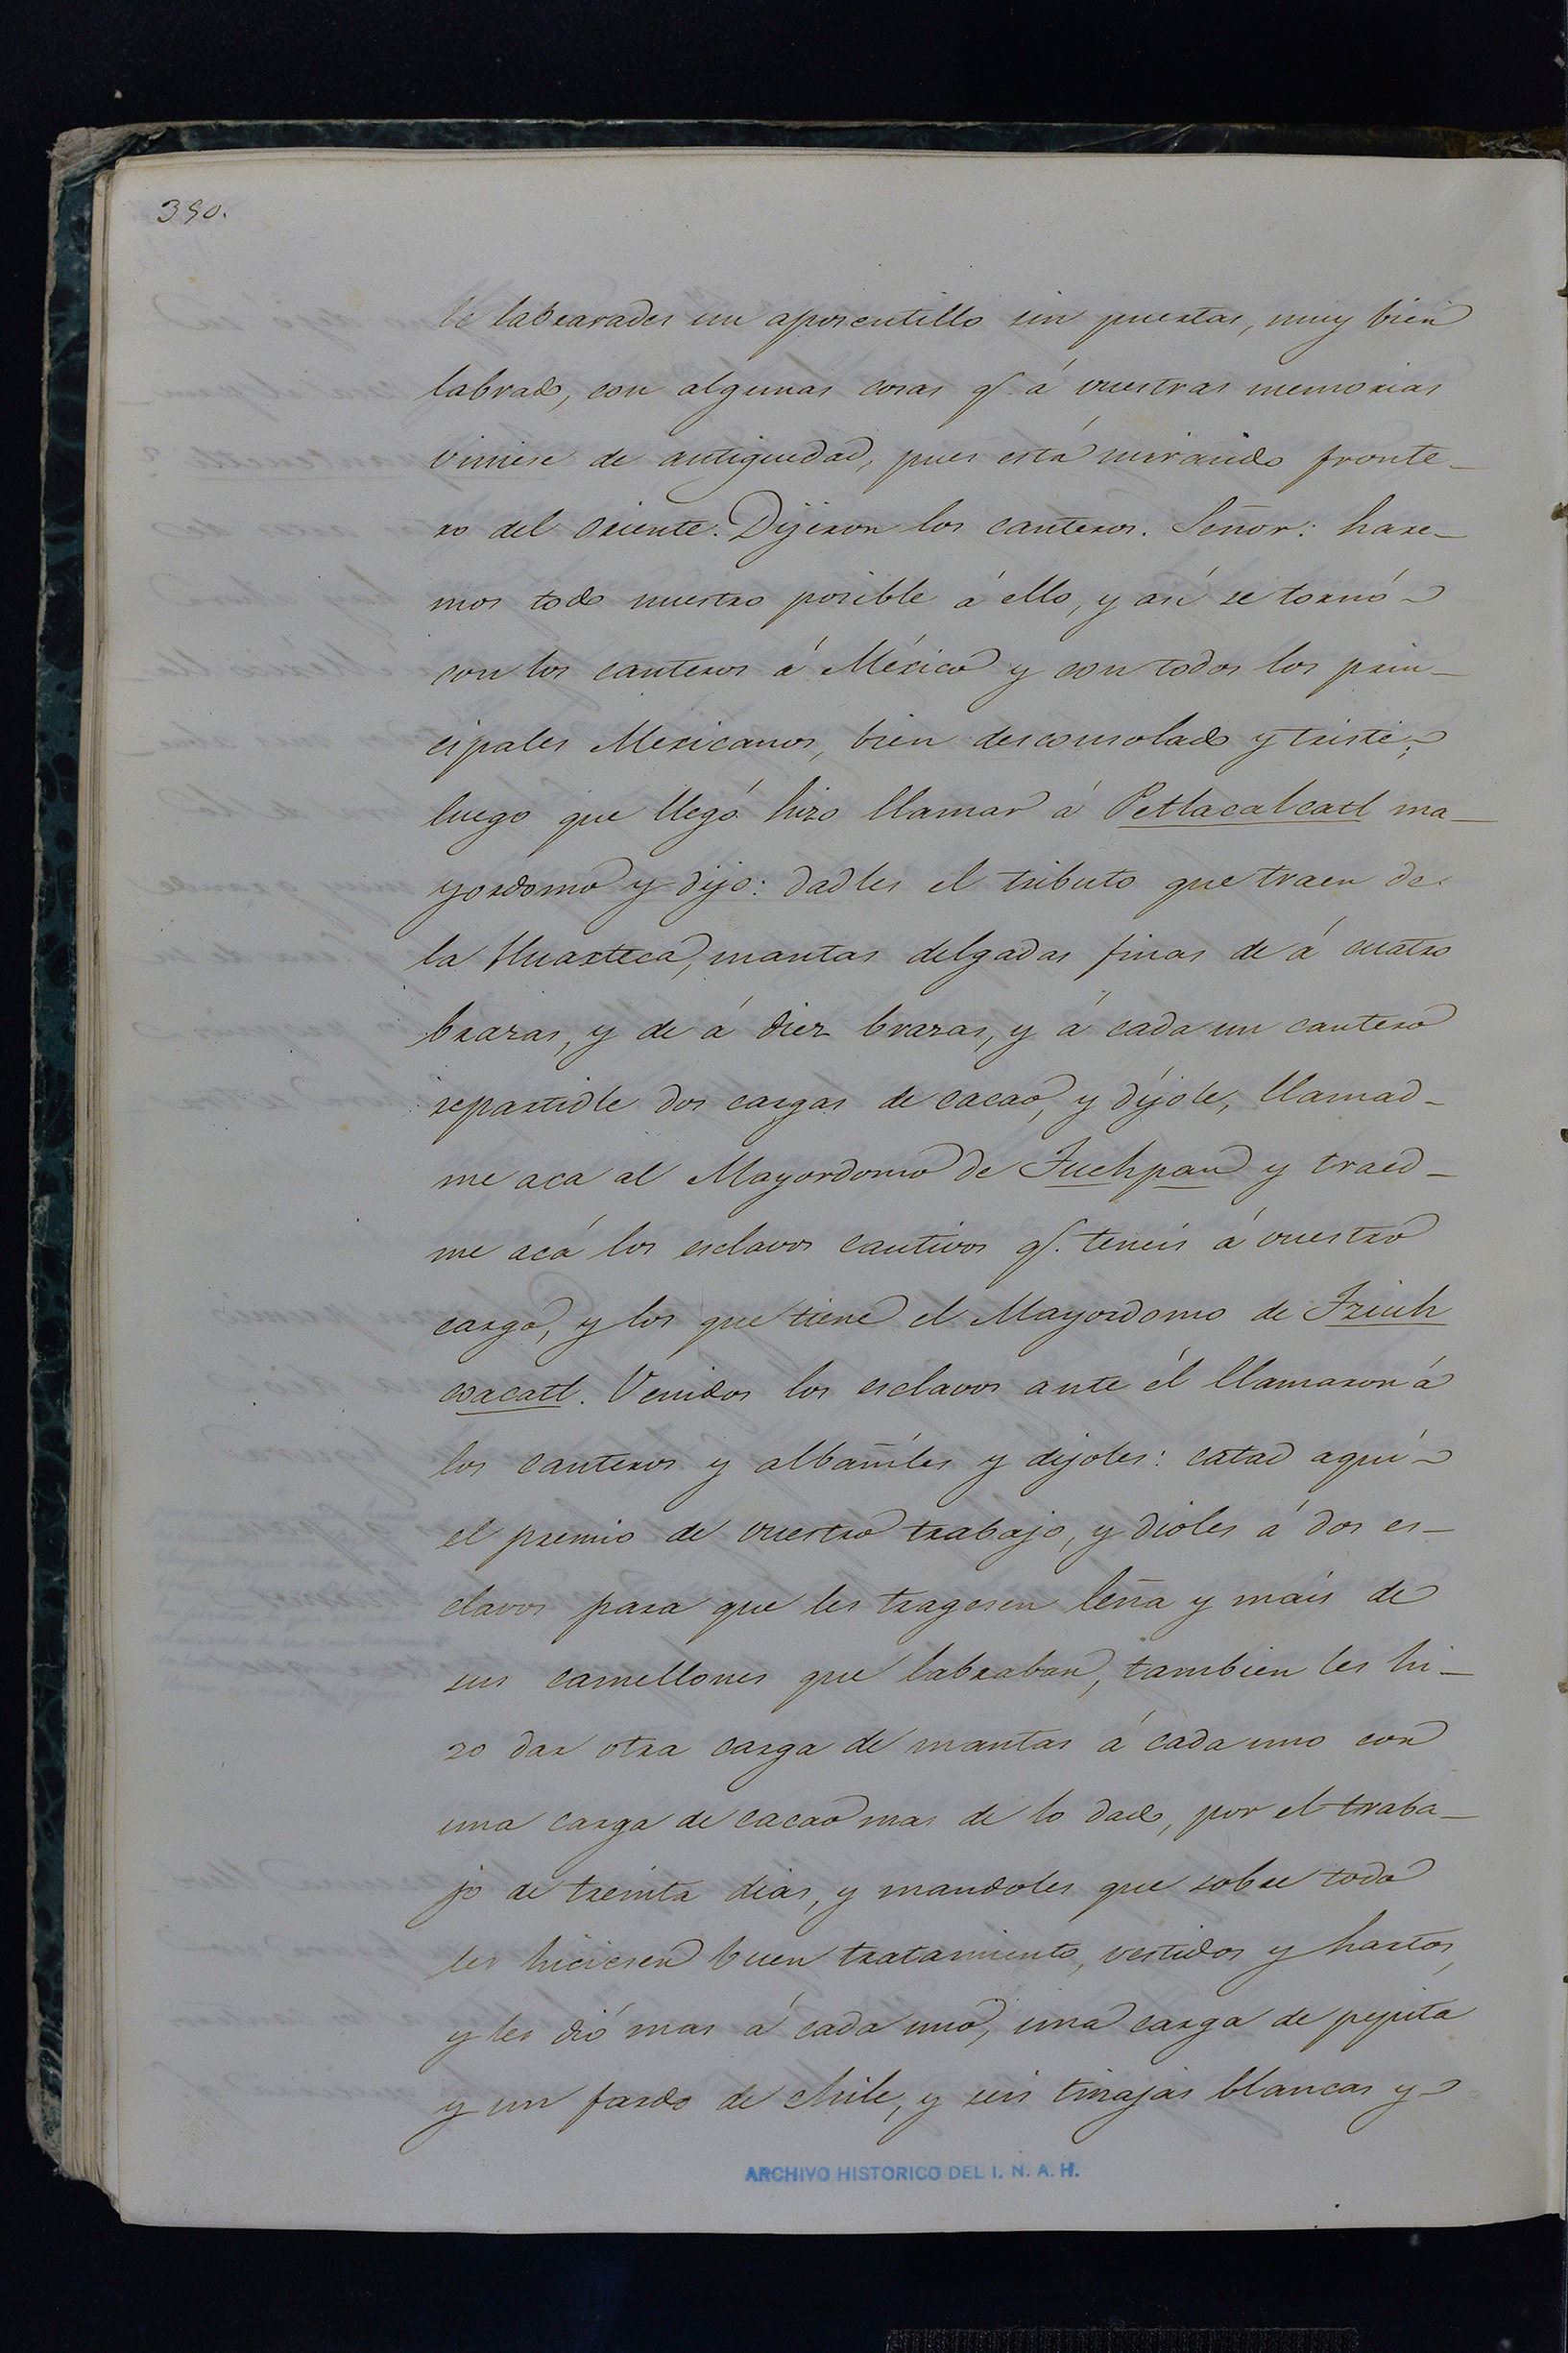 390.
le labrarades un aposentillo sin puertas, muy bien
labrado, con algunas cosas q.^ á vuestras memorias
viniese de antiguedad, pues está mirando fronte-
ro del oriente. Dijeron los canteros. Señor: hare-
mos todo nuestro posible á ello, y así se tornó
con los canteros á México y con todos los prin-
cipales Mexicanos, bien desconsolado y triste;
luego que llegó hizo llamar á Petlacalcatl ma-
yordomo y dijo: dadles el tributo que traen de
la Huaxteca, mantas delgadas finas de á cuatro
brazas, y de á diez brazas, y á cada un cantero
repartidle dos cargas de cacao, y díjole, llamad-
me aca al Mayordomo de Tuchpan y traed-
me acá los esclavos cautivos q.^ teneis á vuestro
cargo, y los que tiene el Mayordomo de Tziuh
coacatl. Venidos los esclavos ante él llamaron á
los canteros y albañiles y dijoles: catad aquí
el premio de vuestro trabajo, y dioles á dos es-
clavos para que les tragesen leña y mais de
sus camellones que labraban, tambien les hi-
zo dar otra carga de mantas á cada uno con
una carga de cacao mas de lo dado, por el traba-
jo de treinta dias, y mandoles que sobre todo
les hiciesen buen tratamiento, vestidos y hartos,
y les dió mas á cada uno, una carga de pepita
y un fardo de chile, y seis tinajas blancas y
ARCHIVO HISTORICO DEL I. N. A. H.